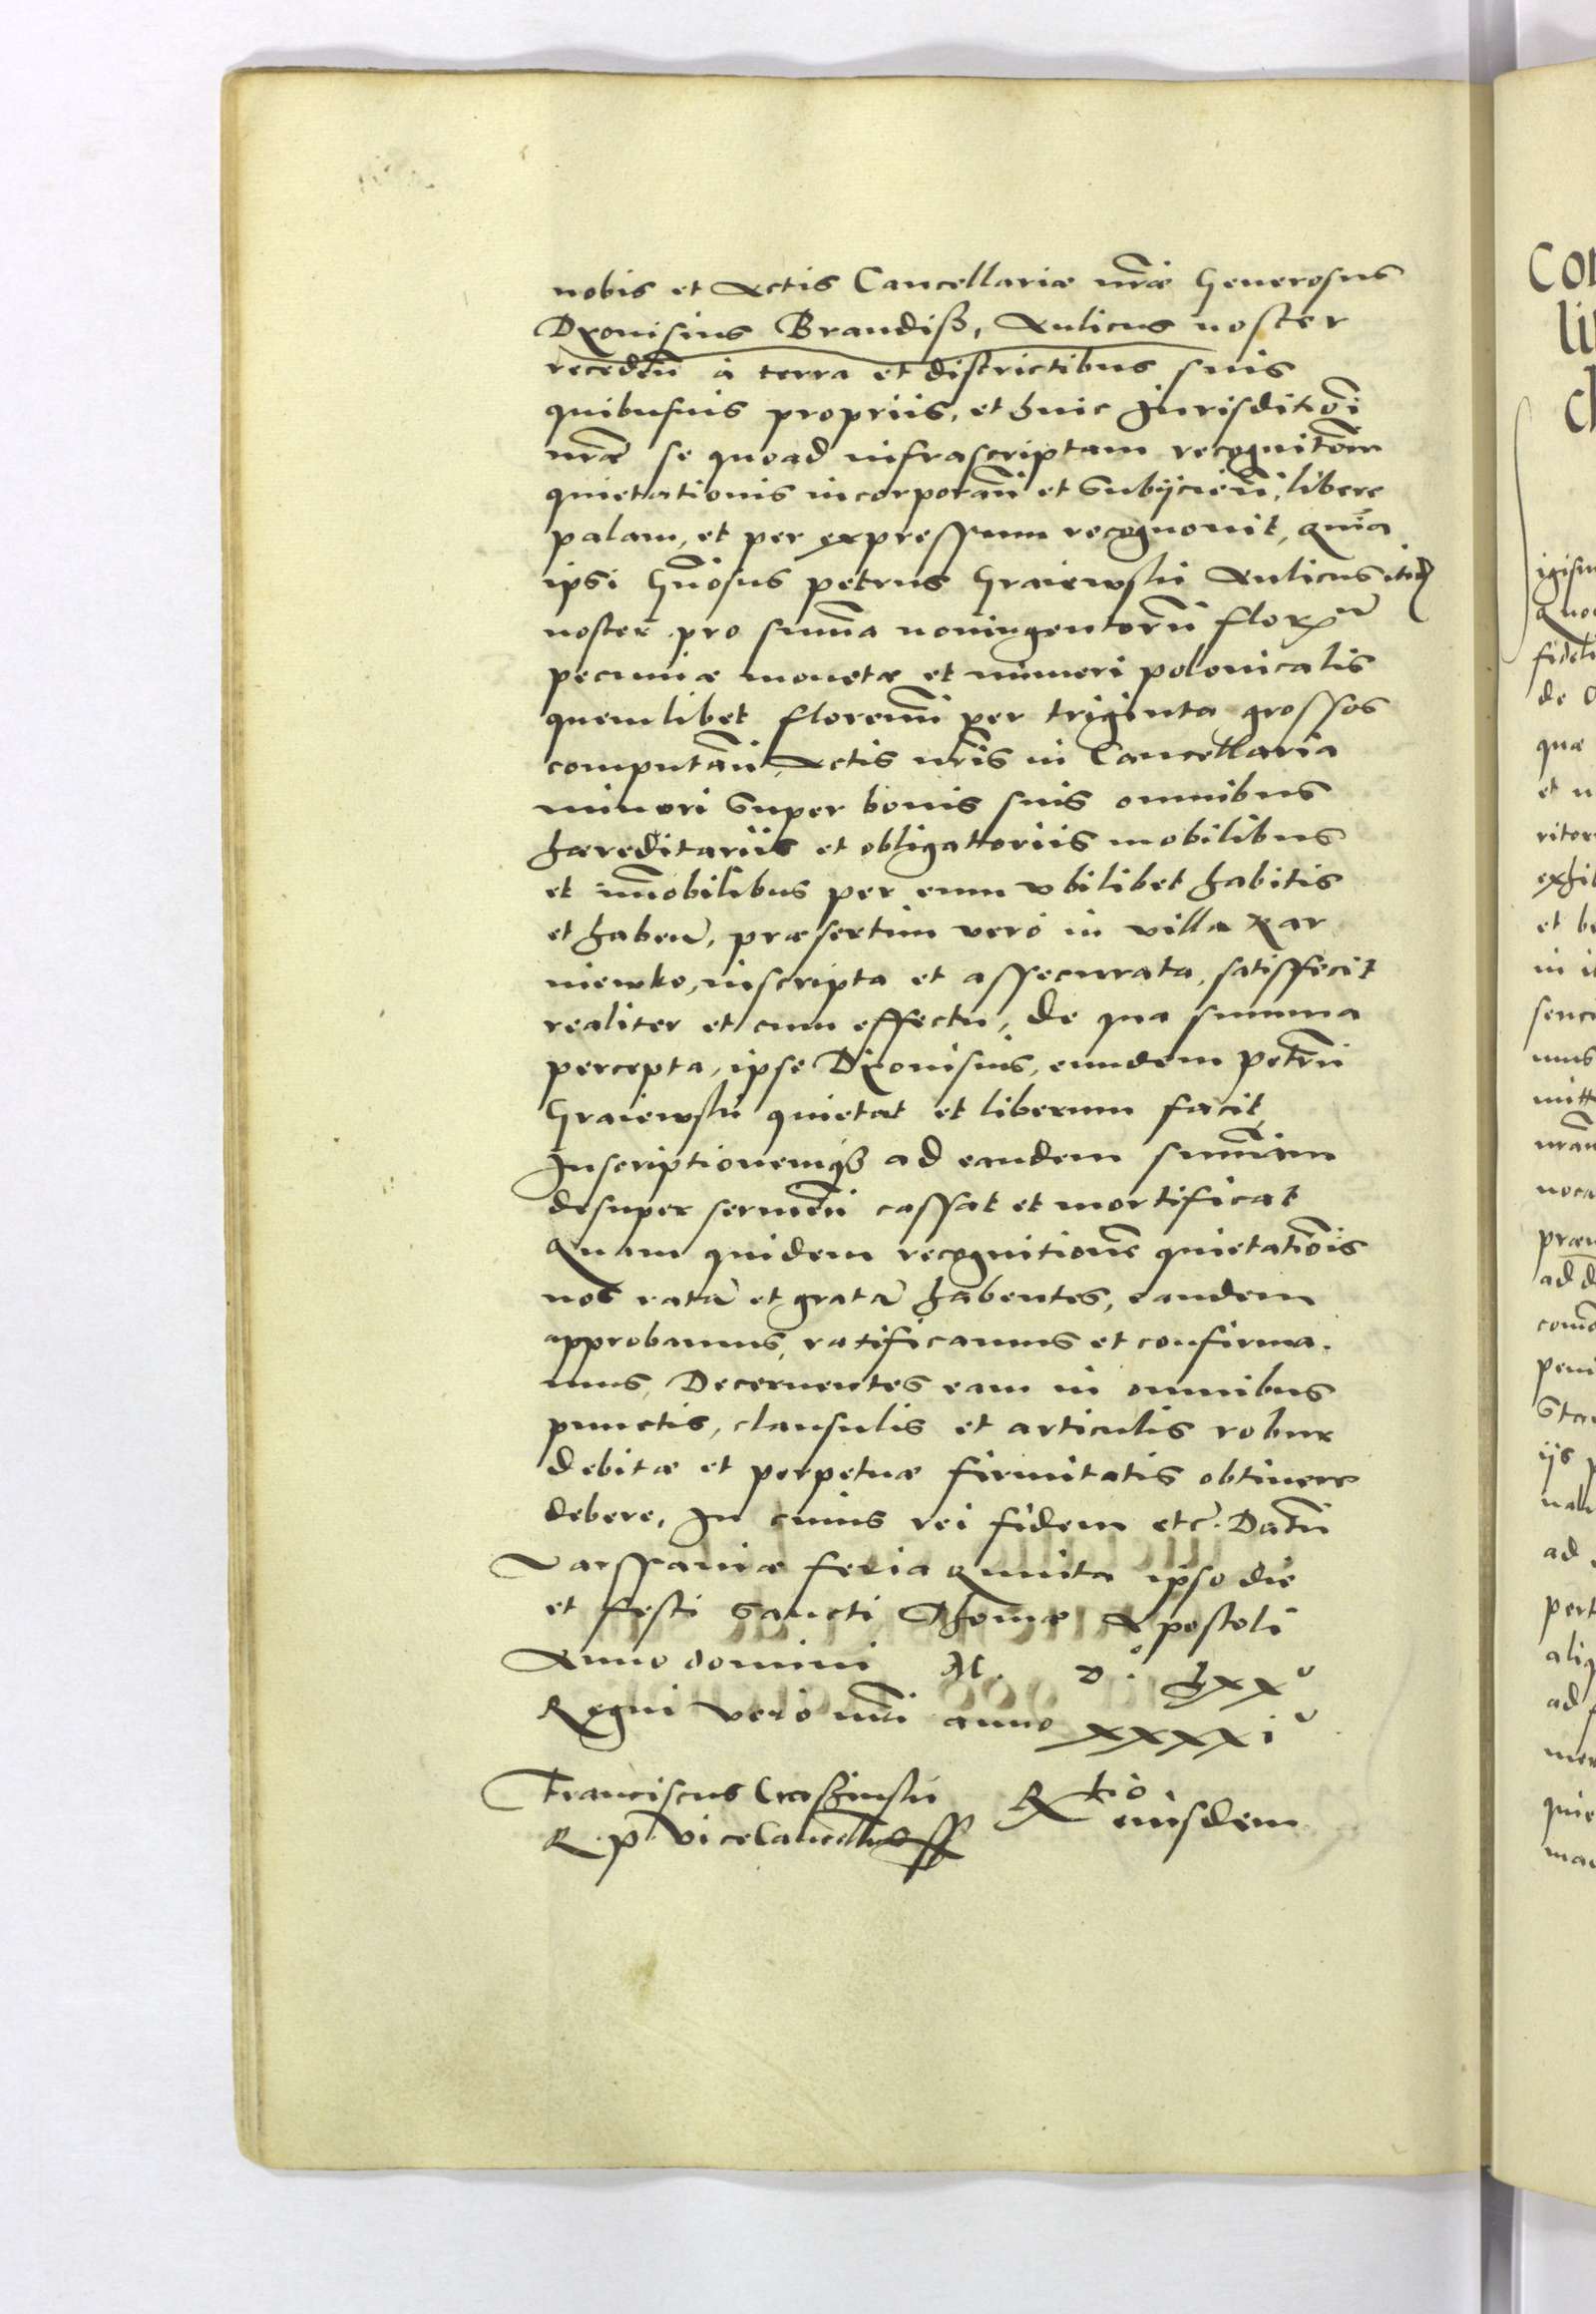 nobis et Actis Cancellariæ nr̃æ Generosus
Dyonisius Brandiß, Aulicus noster
recedeñ à terra et districtibus suis
quibusuis propriis, et huic Jurisditiõni
nr̃æ se quoad infrascriptam recognitõem
quietationis incorporañ et Subijcieñ, libere
palam, et per expressum recognouit, quia
ipsi Gñosus Petrus Graiewski Aulicus itidẽ
noster pro sum̃a noningentorũ flor̃
pecuniæ monetæ et numeri polonicalis
quemlibet florenũ per triginta grossos
computañ, Actis nr̃is in Cancellaria
minori Super bonis suis omnibus
hæreditariis et obligatoriis mobilibus
et im̃obilibus per eum vbilibet habitis
et habeñ, præsertim vero in villa Kar
niewko, inscripta et assecurata, satisfecit
realiter et cum effectu, de qua summa
percepta, ipse Dyonisius, eundem Petrũ
Graiewski quietat et liberum facit
Inscriptionemq3 ad eandem sum̃am
desuper seruieñ cassat et mortificat
Quam quidem recognitionẽ quietatiõis
nos ratã et gratã habentes, eandem
approbamus, ratificamus et confirma.
mus, Decernentes eam in omnibus
punctis, clausulis et articulis robur
debitæ et perpetuæ firmitatis obtinere
debere, In cuius rei fidem etc̃. Datũ
Varssauiæ feria Quinta ipso die
et festi Sancti Thomæ Apostoli
Anno domini M. D.º Lxxº
Regni vero nr̃i anno xxxxiº
Franciscus Crasinski Rtio
R. P. Vicecancellarius eiusdem